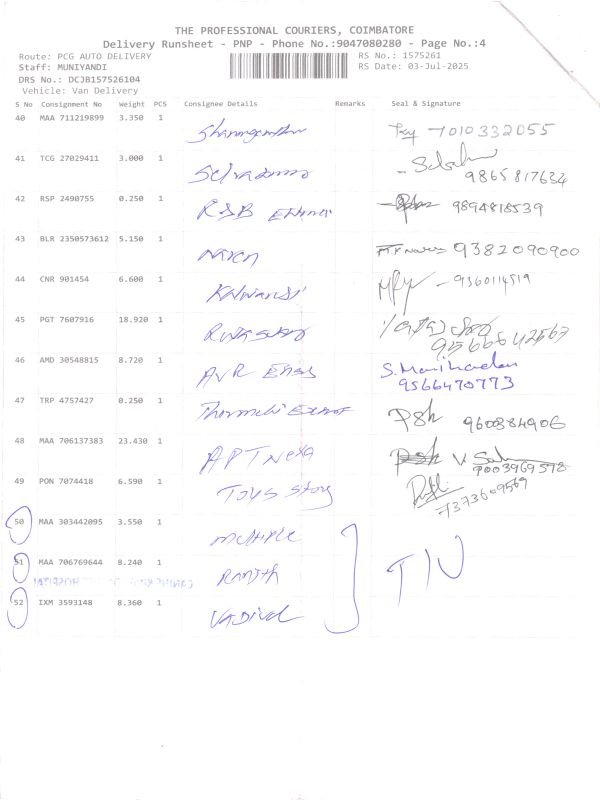 THE PROFESSIONAL COURIERS, COIMBATORE
Delivery Runsheet - PNP - Phone No.:9047080280 - Page No.:4
Route: PCG AUTO DELIVERY RS No.: 1575261
Staff: MUNIYANDI RS Date: 03-Jul-2025
DRS No.: DCJB157526104
Vehicle: Van Delivery
S No Consignment No Weight PCS Consignee Details Remarks Seal & Signature
40 MAA 711219899 3.350 1 7010332055
41 TCG 27029411 3.000 1 Selvakumar
9865817634
42 RSP 2490755 0.250 1 RSB 9894818539
43 BLR 2350573612 5.150 1 9382090900
44 CNR 901454 6.600 1 9360114519
45 PGT 7607916 18.920 1
9566642567
46 AMD 30548815 8.720 1 AVR Engg S. Manikandan
9566470773
47 TRP 4757427 0.250 1 PSK 960384906
48 MAA 706137383 23.430 1 APT Nexa
7003969578
49 PON 7074418 6.590 1 Toys Story
7373609569
50 MAA 303442095 3.550 1 multiple
51 MAA 706769644 8.240 1 Ranjith
52 IXM 3593148 8.360 1 Vadivel